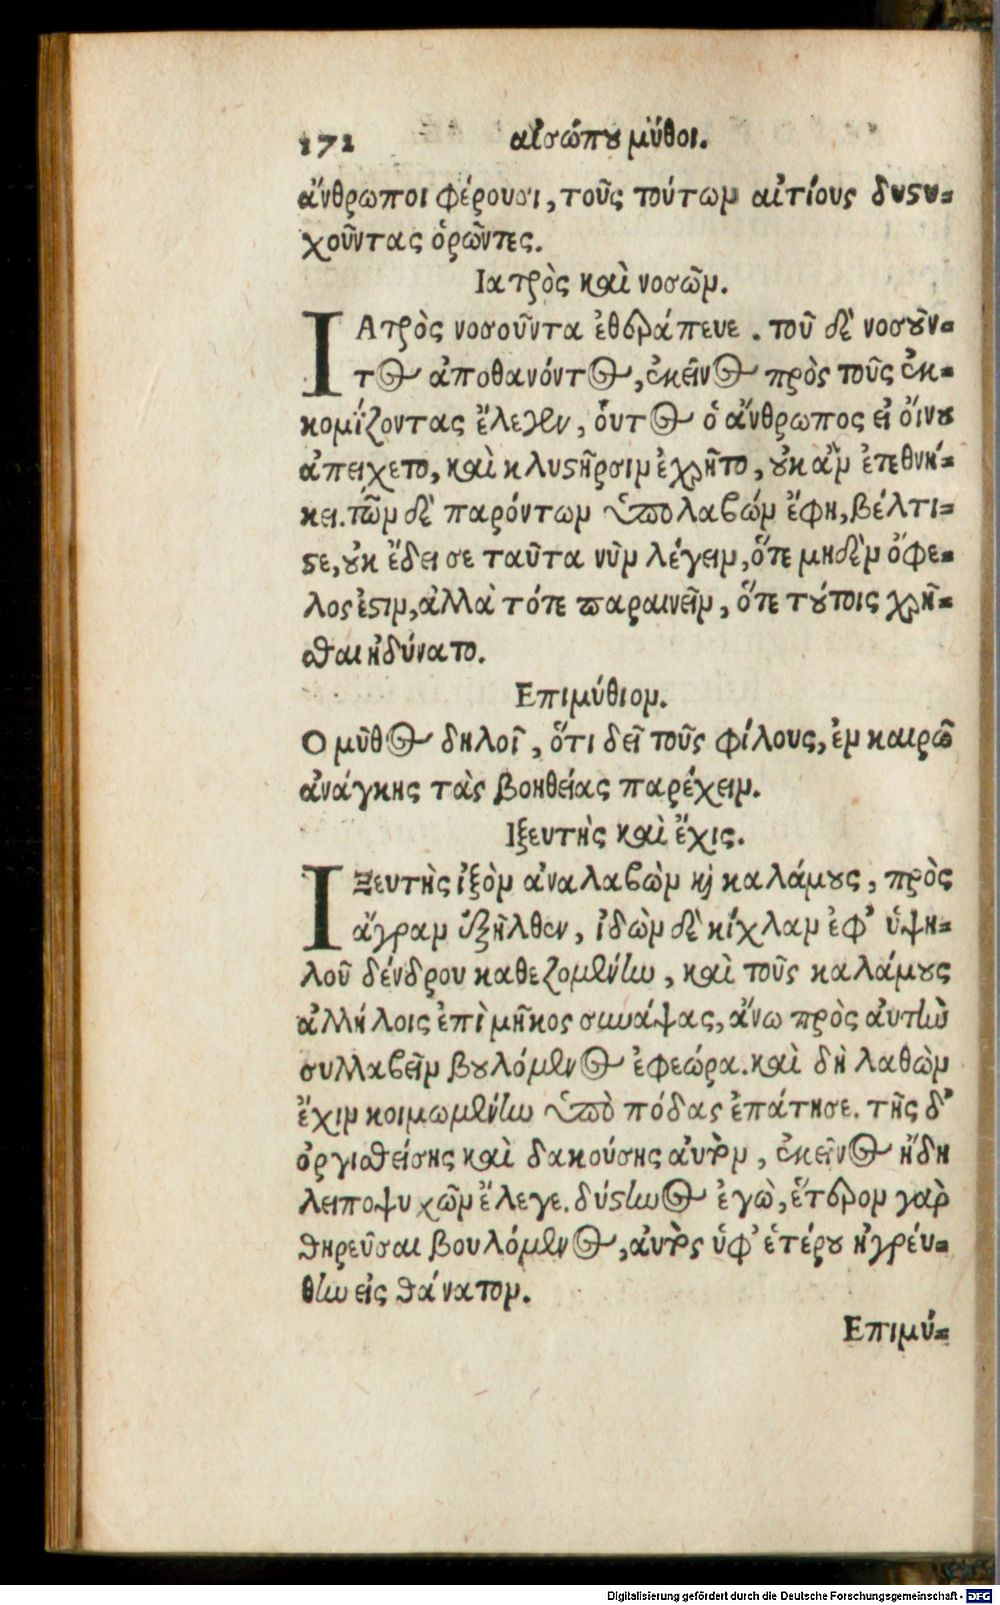 172 αἰσώπου μύθοι.
ἄνθρωποι φέρουσι, τοὺς τούτων αἰτίους δυστυ-
χοῦντας ὁρῶντες.
Ιατρὸς καὶ νοσῶν.
ΙΑτρὸς νοσοῦντα ἐθεράπευε. τοῦ δὲ νοσοῦν-
τος ἀποθανόντος, ἐκεῖνος πρὸς τοὺς ἐκ-
κομίζοντας ἔλεγεν, οὗτος ὁ ἄνθρωπος εἰ ὄινου
ἀπείχετο, καὶ κλυστῆρσιν ἐχρῆτο, οὐκ ἂν ἐτεθνή-
κει. τῶν δὲ παρόντων ὑπολαβών ἔφη, βέλτι-
στε, οὐκ ἔδει σε ταῦτα νῦν λέγειν, ὅτε μηδὲν ὄφε-
λος ἐστιν, ἀλλὰ τότε παραινεῖν, ὅτε τούτοις χρῆ-
σθαι ἠδύνατο.
Επιμύθιον.
Ο μῦθος δηλοῖ, ὅτι δεῖ τοὺς φίλους, ἐν καιρῶ
ἀνάγκης τὰς βοηθείας παρέχειν.
Ιξευτὴς καὶ ἔχις.
ΙΞευτὴς ἰξὸν ἀναλαβὼν καὶ καλάμους, πρὸς
ἄγραν ἐξῆλθεν, ἰδὼν δὲ κίχλαν ἐφ' ὑψη-
λοῦ δένδρου καθεζομένην, καὶ τοὺς καλάμους
ἀλλήλοις ἐπὶ μῆκος συνάψας, ἄνω πρὸς ἀυτὴν
συλλαβεῖν βουλόμενος ἐφεώρα. καὶ δὴ λαθὼν
ἔχιν κοιμωμένην ὑπὸ πόδας ἐπάτησε. τῆς δ'
ὀργισθείσης καὶ δακούσης ἀυτὸν, ἐκεῖνος ἤδη
λειποψυχῶν ἔλεγε. δύστηνος ἐγὼ, ἕτερον γὰρ
θηρεῦσαι βουλόμενος, ἀυτὸς ὑφ' ἑτέρου ἠγρέυ-
θην εἰς θάνατον.
Επιμύ-
Digitalisierung gefördert durch die Deutsche Forschungsgemeinschaft - DFG